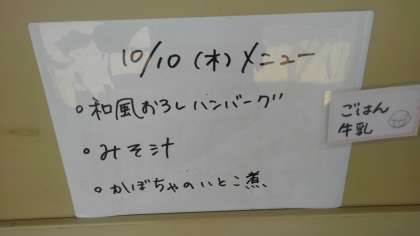 10/10(木)メニュー
○和風おろしハンバーグ
○みそ汁
○かぼちゃのいとこ煮
ごはん
牛乳